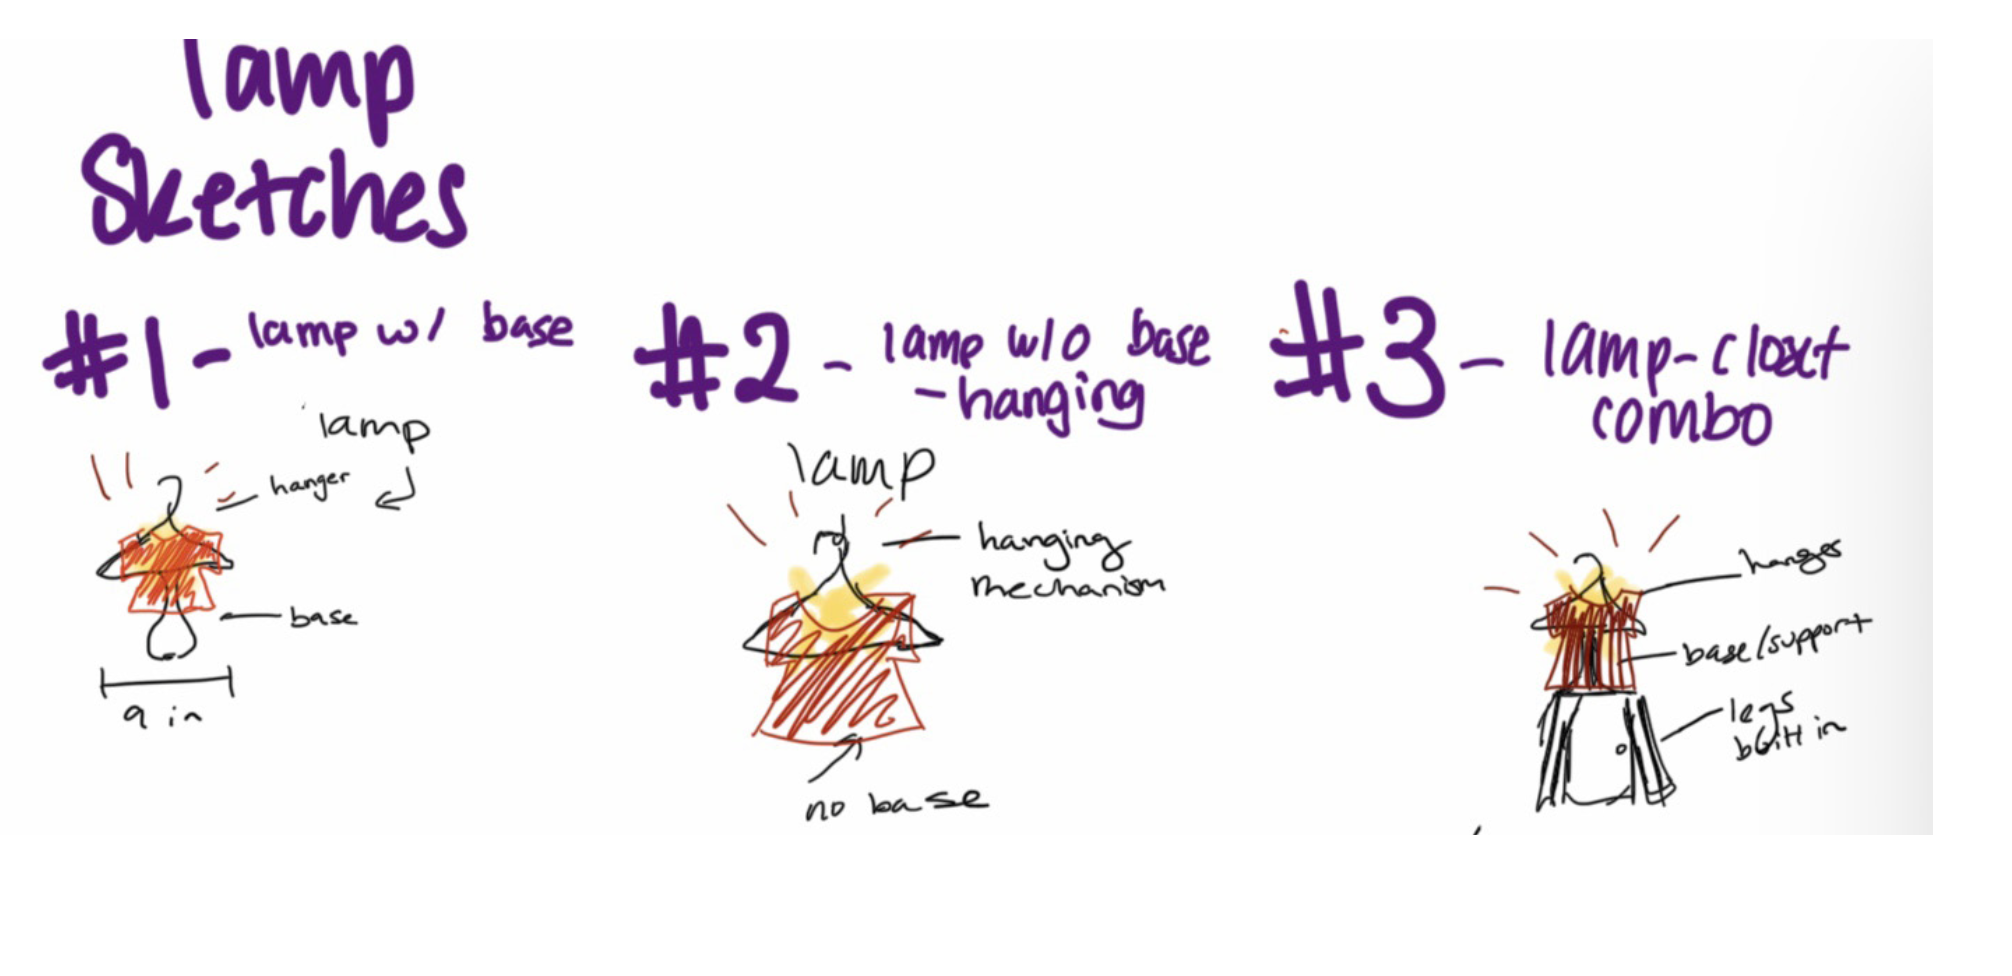 lamp
Sketches
#1 - lamp w/ base
lamp
hanger
base
9 in
#2 - lamp w/o base
- hanging
lamp
hanging
mechanism
no base
#3 - lamp-closet
combo
hanger
base/support
legs
built in